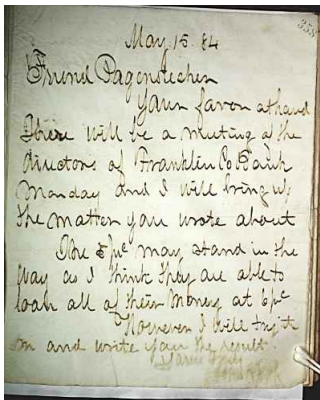 358
May 15 84
Friend Pagenstecher
Your favor at hand
There will be a meeting of the
directors of Franklin Co Bank
Monday and I will bring up
the matter you wrote about
The 5 pc may stand in the
way as I think they are able to
loan all of their money at 6 pc
However I will try it
on and write you the result.